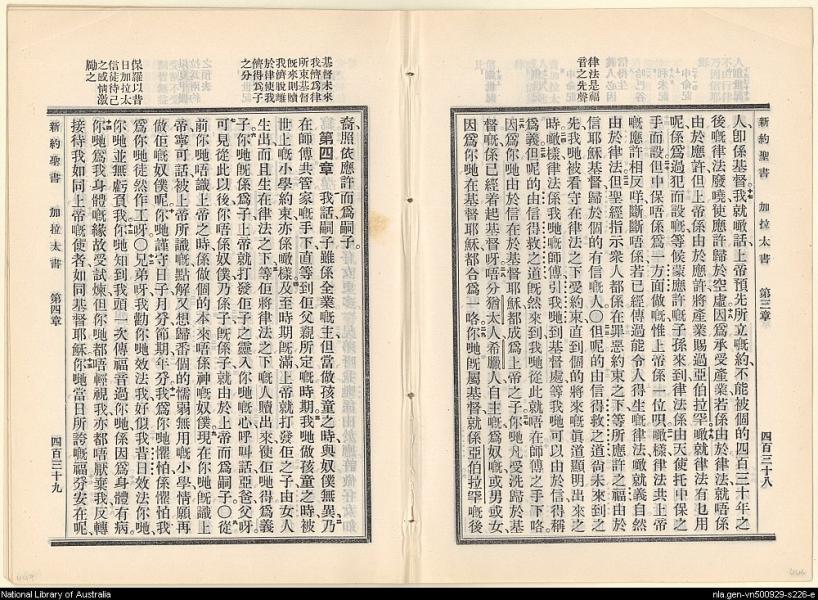 律法是福
音之先聲
新約聖書 加拉太書 第三章 四百三十八
人、卽係基督我就噉話、上帝預先所立嘅約、不能被個的四百三十年之
後嘅律法廢嘵、使應許歸於空虛、因爲承受產業、若係由於律法、就唔係
由於應許、但上帝係由於應許、將產業賜過亞伯拉罕噉就律法有乜用
呢、係爲過犯而設嘅、等候蒙應許嘅子孫來到、律法係由天使托中保之
手而設、但中保唔係爲一方面做嘅、惟上帝係一位、唄噉樣、律法共上帝
嘅應許相反咩、斷斷唔係、若已經傳過能令人得生嘅律法、噉就義自然
由於律法、但聖經指示衆人都係在罪惡約束之下、等所應許之福由於
信耶穌基督、歸於個的有信嘅人、〇但呢的由信得救之道、尙未來到之
先、我哋被看守在律法之下、受約束直到個的將來嘅真道顯明出來之
時、噉樣律法係我哋嘅師傅、引我哋到基督處、等我哋可以由於信得稱
爲義、但呢的由信得救之道、旣然來到、我哋從此就唔在師傅之手下咯、
因爲你哋由於信、在於基督耶穌都成爲上帝之子、你哋凡受洗歸於基
督嘅、係已經着起基督呀、唔分猶太人希臘人自主嘅爲奴嘅、或男或女、
因爲你哋在基督耶穌都合爲一咯、你哋旣屬基督、就係亞伯拉罕嘅後
基督未來
我儕爲律
所束基督
旣來則贖
我儕脫離
於律使我
儕得爲子
之分
保羅以昔
日加拉太
信徒待己
之感情激
勵之
裔、照依應許而爲嗣子。
第四章 我話、嗣子雖係全業嘅主、但當做孩童之時、與奴僕無異、乃
在師傅共管家嘅手下、直等到佢父親所定嘅時期、我哋做孩童之時、被
世上嘅小學約束、亦係噉樣、及至時期旣滿、上帝就打發佢之子、由女人
生出、而且生在律法之下、等佢將律法之下嘅人贖出來、使佢哋得爲義
子、你哋旣係爲子、上帝就打發佢子之靈、入你哋嘅心、呼叫話、亞爸父呀、
可見從此以後、你唔係奴僕、乃係子、旣係子、就由於上帝而爲嗣子、〇從
前你哋唔識上帝之時、係做個的本來唔係神嘅奴僕、現在你哋旣識上
帝、寧可話被上帝所識嘅、點解又想歸番個的懦弱無用嘅小學、情願再
做佢嘅奴僕呢、你哋謹守日子月分節期年分、我爲你哋懼怕、係懼怕我
爲你哋徒然作工呀、〇兄弟呀、我勸你哋效法我、好似我昔日效法你哋、
你哋並無虧負我、你哋知到我頭一次傳福音過你哋、係因爲身體有病、
你哋爲我身體嘅緣故受試煉、但你哋都唔輕視我、亦都唔厭棄我、反轉
接待我、如同上帝嘅使者、如同基督耶穌、你哋當日所誇嘅福分安在呢、
新約聖書 加拉太書 第四章 四百三十九
National Library of Australia
nla.gen-vn500929-s226-e